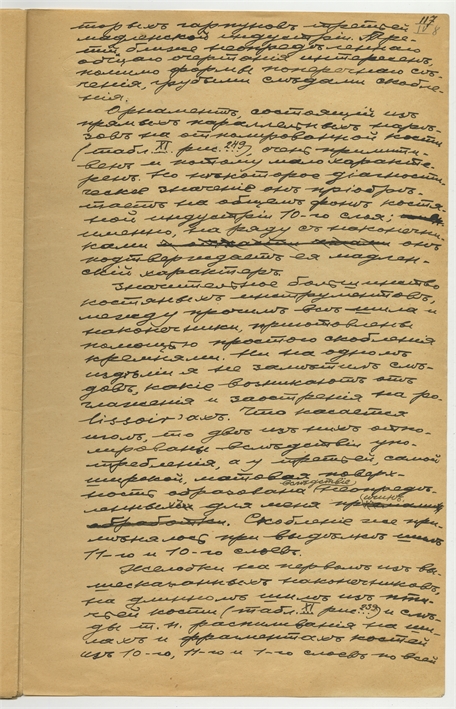 117
IV/8
торымъ гарпуновъ третьей
мадленской индустріи. Тре-
тій близе неопредѣленнаго
общаго очертанія интересенъ,
помимо формы поперечнаго сѣ-
ченія, грубыми слѣдами скобле-
нія.
Орнаментъ, состоящій изъ
прямыхъ параллельныхъ нарѣ-
зовъ на отполированной кости
(табл. XI рис. 249), очень примити-
венъ и потому мало характе-
ренъ. Но нѣкоторое діагности-
ческое значеніе онъ пріобрѣ-
таетъ на общемъ фонѣ костя-
ной индустріи 10-го слоя;
именно, на ряду съ наконечни-
ками онъ
подтверждаетъ ея мадлен-
скій характеръ.
Значительное большинство
костяныхъ инструментовъ,
между прочимъ всѣ шила и
наконечники, приготовлены
помощью простого скобленія
кремнями. Ни на одномъ
издѣліи я не замѣтилъ слѣ-
довъ, какіе возникаютъ отъ
глаженія и заостренія на po-
lissoir'ахъ. Что касается
иголъ, то двѣ изъ нихъ отпо-
лированы вслѣдствіе упо-
требленія, а у третьей, самой
широкой, матовая поверх-
ность образована вслѣдствіе неопредѣ-
ленныхъ для меня причинъ
обработки. Скобленіе же при-
мѣнялось при выдѣлкѣ шилъ
11-го и 10-го слоевъ.
Желобки на первомъ изъ вы-
шесказанныхъ наконечниковъ,
на длинномъ шилѣ изъ пти-
чьей кости (табл. XI рис. 239) и слѣ-
ды т. н. распиливанія на ши-
лахъ и фрагментахъ костей
изъ 10-го, 11-го и 1-го слоевъ по всей